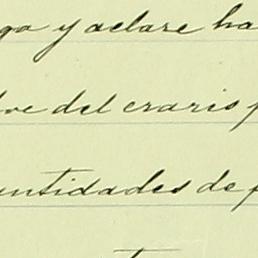 ga y aclare ha
ive del erario p
entidades de p